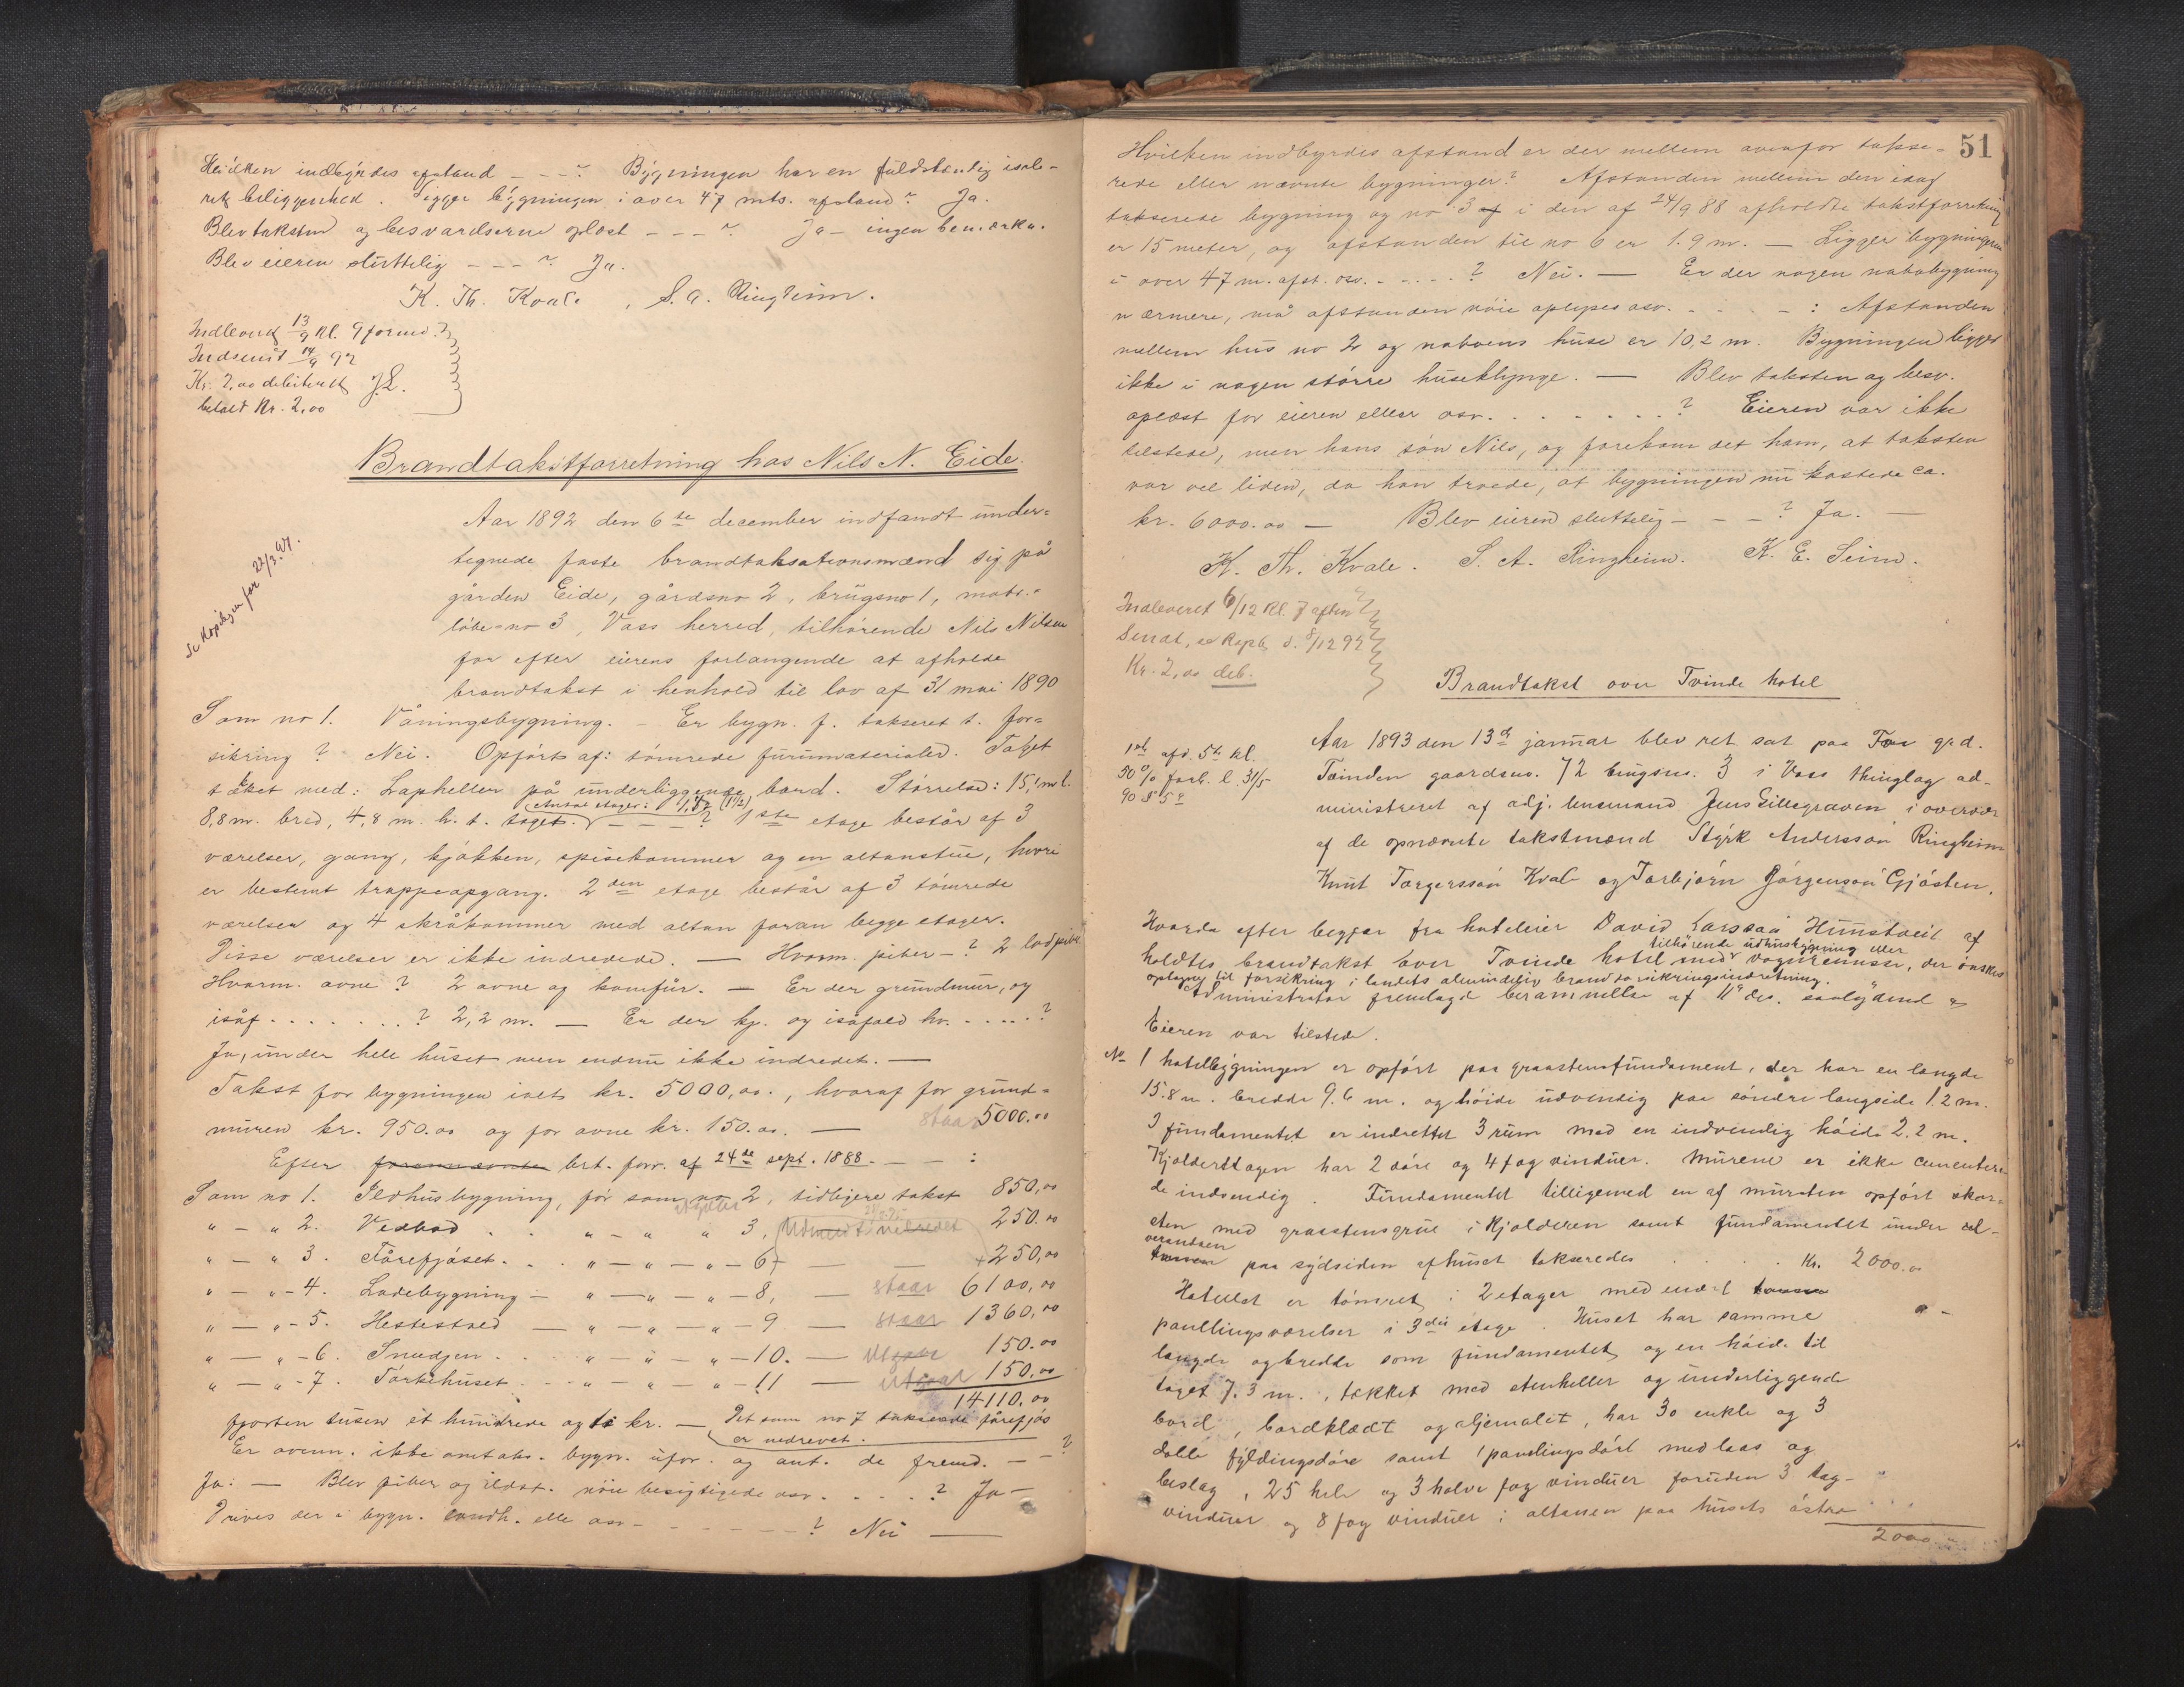 Hvilken indbyrdes afstand - - - ? Bygningen har en fuldstændig isole-
ret beliggenhed. Ligger bygningen i over 47 mts. afstand? Ja.
Blev taksten og besvarelserne oplæst - - - ? Ja - ingen bemærkn.
Blev eieren sluttelig - - - ? Ja.
K. Th. Kvale, S. A. Ringheim.
Indleveret 13/9 Kl. 9 formd.
Indsendt 14/9 92
Kr. 2,00 debiteret
betalt Kr. 2,00
Brandtakstforretning hos Nils N. Eide.
Aar 1892 den 6te december indfandt under=
tegnede faste brandtaksationsmænd sig på
gården Eide, gårdsno 2, brugsno 1, matr.-
löbe=no 3, Voss herred, tilhörende Nils Nilsen
for efter eierens forlangende at afholde
brandtakst i henhold til lov af 31 mai 1890
Se Kopibogen for 22/3.97.
Som no 1. Våningsbygning. - Er bygn. f. takseret t. for=
sikring? Nei. Opfört af: tömrede furumaterialer. Taget
tækket med: Lapheller på underliggende bord. Störrelse: 15,1 m l.
Antal etager: 1 1/2 (1 1/2)
8,8 m. bred, 4,8 m. h. t. taget. - - - ? 1ste etage består af 3
værelser, gang, kjökken, spisekammer og en altanstue, hvori
er bestemt trappeopgang. 2den etage består af 3 tömrede
værelser og 4 skråkammer med altan foran begge etager.
Disse værelser er ikke indredede. - Hvorm. piber - ? 2 lodpiber
Hvorm. ovne? 2 ovne og komfür. - Er der grundmur, og
isåf. . . . . . . ? 2,2 m. - Er der kj. og isåfald hv. . . . . ?
Ja, under hele huset men endnu ikke indredet. -
Takst for bygningen ialt kr. 5000,00., hvoraf for grund=
muren kr. 950.00 og for ovne kr. 150.00. - staar 5000.00
Efter brt. forr. af 24de sept. 1888. - - :
Som no 1. Ildhusbygning, för som no 2, tidligere takst 850,00
" - " 2. Vedbod . . " - " " 3, 250.00
" - " 3. Fårefjöset. . . " - " - " - 6 - + 250,00
" - " - 4. Ladebygning - " - " - " - 8, - staar 6100,00
" - " - 5. Hestestald - " - " - " - 9 - staar 1360,00
" - " - 6. Smedjen. . . " - " - " - 10. - Utgaar 150.00
" - " - 7. Törkehuset. . . " - " - " - 11 - Utgaar 150,00
14110,00
fjorten tusen et hundrede og ti kr. - Det som no 7 takserede fårefjös
er nedrevet.
Er ovenn. ikke omtaks. bygn. ufor. og ant. de fremd. - - ?
Ja: - Blev piber og ildst. nöie besigtigede osv. . . . . ? Ja -
Drives der i bygn. landh. elle osv - - - - - - ? Nei -
51
Hvilken indbyrdes afstand er der mellem ovenfor takse=
rede eller nævnte bygninger? Afstanden mellem den idag
takserede bygning og no 3 i den af 24/9 88 afholdte takstforretning
er 15 meter, og afstanden til no 6 er 1.9 m. - Ligger bygningen
i over 47 m. afst. osv. . . . . . ? Nei. - Er der nogen nabobygning
nærmere, må afstanden nöie oplyses osv. . . . - : Afstanden
mellem hus no 2 og naboens huse er 10,2 m. Bygningen ligger
ikke i nogen större huseklynge. - Blev taksten og besv.
oplæst for eieren eller osv. . . . . . . ? Eieren var ikke
tilstede, men hans sön Nils, og forekom det ham, at taksten
var vel liden, da han troede, at bygningen nu kostede ca.
kr. 6000.00 - Blev eieren sluttelig - - - ? Ja. -
K. Th. Kvale. S. A. Ringheim. K. E. Seim.
Indleveret 6/12 Kl. 7 aften
Sendt, se Kopb, d. 8/12 92
Kr. 2,00 deb.
Brandtakst over Tvinde hotel
1ste afd. 5te kl.
50% forh. l. 31/5
90 § 5
Aar 1893 den 13de januar blev ret sat paa grd.
Tvinden gaardsno. 72 brugsno. 3 i Voss thinglag ad-
ministreret af adj. lensmand Jens Lillegraven i overvær
af de opnævnte takstmænd Styrk Andersson Ringheim
Knut Torgersson Kvale og Torbjörn Jörgenson Gjösten.
Hvorda efter begjær fra hoteleier David Larsson Himstveit af
tilhörende udhusbygning eller
holdtes brandtakst over Tvinde hotel med vognremisse, der önskes
optaget til forsikring i landets almindelige brandforsikringsindretning.
Administrator fremlagde berammelse af 11 ds. saalydende
Eieren var tilstede.
No 1 hotelbygningen er opfört paa graastensfundament, der har en længde
15.8 m. bredde 9.6 m. og höide udvendig paa söndre langside 1.2 m.
I fundamentet er indrettet 3 rum med en indvendig höide 2.2 m.
Kjelderetagen har 2 döre og 4 fag vinduer. Murene er ikke cementere
de indvendig. Fundamentet tilligemed en af mursten opfört skor-
sten med graastensgrue i Kjelderen samt fundamentet under
verandaen
paa sydsiden af huset takseredes . . . . Kr. 2000.00
Hotellet er tömret i 2 etager med endel
panelingsværelser i 3die etage. Huset har samme
længde og bredde som fundamentet, og en höide til
taget 7.3 m., tækket med stenheller og underliggende
bord, bordklædt og oljemalet, har 30 enkle og 3
doble fyldingsdöre samt 1 panelingsdöre med laas og
beslag, 25 hele og 3 halve fag vinduer foruden 3 tag-
vinduer og 8 fag vinduer i altanen paa husets östre
2000